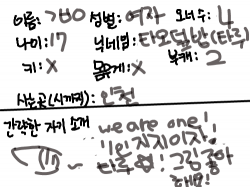 이름: ㄱㅂㅇ 성별: 여자 오너수: 4
나이: 17 닉네임: 타오르방(타루) 복캐: 2
키: X 몸무게: X
사는곳(시까지): 인천
간략한 자기 소개
we are one!
1인 지지이자!
타루 그림 좋아
해요!